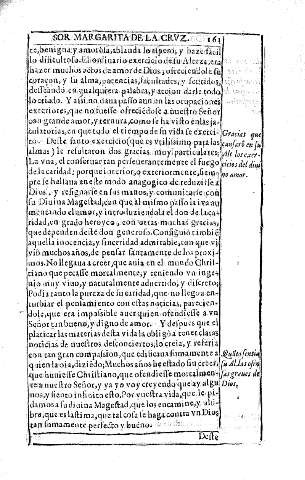 SOR MARGARITA DE LA CRVZ. 161
te, benigna y amorosa, ablanda lo aspero, y haze facil
lo dificultoso. Era ordinario exercicio de su Alteza, era
hazer muchos actos de amor de Dios, ofreciendole su
coraçon, y su alma, potencias, facultades, y sentidos,
desseando en qualquiera palabra, y accion darle todo
lo criado. Y assi no dava passo aun en las ocupaciones
exteriores, que no fuesse ofreciendole a nuestro Señor
con grande amor, y ternura, como se ha visto en las ja-
culatorias, en que todo el tiempo de su vida se exerci-
tò. Deste santo exercicio (que es vtilissimo para las
almas) le resultaron dos gracias muy particulares.
La vna, el conservar tan perseverantemente el fuego
de la caridad; porque interior, o exteriormente, siem-
pre se hallava en este modo anagogico de reduzirse a
Dios, y resignarse en sus manos, y comunicarse con
su Divina Magestad, con que al mismo passo iva au-
mentando el amor, y introduziendola el don de la ca-
ridad, en grado heroyco, con otras muchas gracias,
que dependen deste don generoso. Consiguiò tambie
aquella inocencia, y sinceridad admirable, con que vi-
viò muchos años, de pensar santamente de los proxi-
mos. No llegava a creer, que avia en el mundo Christ-
iano que pecasse mortalmente, y teniendo vn inge-
nio muy vivo, y naturalmente advertido, y discreto;
Podia tanto la pureza de la caridad, que no llegò a en-
turbiar el pensamiento con estas noticias, parecien-
dole, que era impossible aver quien ofendiesse a vn
Señor tan bueno, y digno de amor. Y despues que el
platicar las materias desta vida la obligò a tener claras
noticias de nuestros desconciertos, lo creia, y referia
con tan gran compassion, que edificava sumamente a
quien la oia, diziẽdo; Muchos años he estado sin creer,
que huviesse Christiano, que ofendiesse mortalmen-
te a nuestro Señor, y ya yo voy creyendo que ay algu-
nos, y siento infinito esto. Por vuestra vida, que le pi-
damos a su divina Magestad, que los encamine, y alũ-
bre, que es lastima, que tal cosa se haga contra vn Dios
tan sumamente perfecto y bueno.
Deste
Gracias que
causarõ en su
Alt. los exer-
cicios del divi
no amor.
Quãto sentia
su Al. las ofen
sas graves de
Dios.